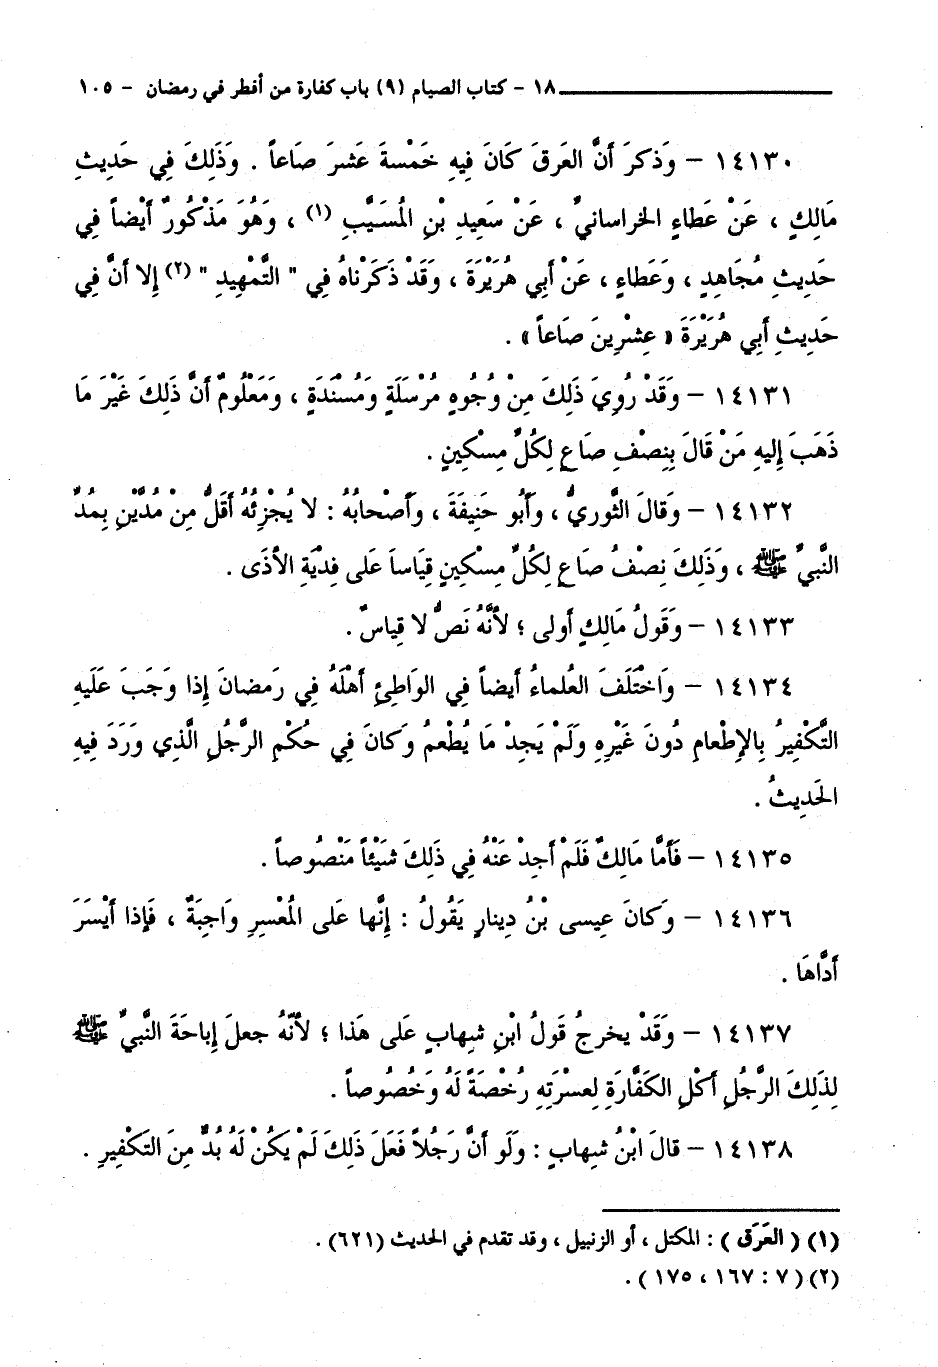 ١٨ - كتاب الصيام (٩) باب كفارة من أفطر في رمضان - ١٠٥
١٤١٣٠ – وَذكرَ أَنَّ العَرقَ كَانَ فِيهِ خَمْسةَ عَشرَ صَاعاً . وَذَلِكَ فِي حَديثِ
مَالِكٍ ، عَنْ عَطَاءٍ الخراسانيِّ ، عَنْ سَعِيدِ بْنِ المُسَيَّبِ (١) ، وَهُوَ مَذْكُورٌ أَيْضاً فِي
حَديثِ مُجَاهِدٍ ، وَعَطَاءٍ ، عَنْ أَبِي هُرَيْرَةَ ، وَقَدْ ذَكَرْنَاهُ فِي " التَّمْهِيدِ " (٢) إِلا أَنَّ فِي
حَديثِ أَبِي هُرَيْرَةَ « عِشْرِينَ صَاعاً » .
١٤١٣١ – وَقَدْ رُوِيَ ذَلِكَ مِنْ وُجُوهٍ مُرْسَلَةٍ وَمُسْنَدَةٍ ، وَمَعْلُومٌ أَنَّ ذَلِكَ غَيْرَ مَا
ذَهَبَ إِليهِ مَنْ قَالَ بِنِصْفِ صَاعٍ لِكُلِّ مِسْكِينٍ .
١٤١٣٢ – وَقَالَ الثَّوريُّ ، وَأَبُو حَنِيفَةَ ، وَأَصْحابُهُ : لا يُجْزِئُهُ أَقَلُّ مِنْ مُدَّيْنِ بِمُدِّ
النَّبيِّ ﷺ ، وَذَلِكَ نِصْفُ صَاعٍ لِكُلِّ مِسْكِينٍ قِيَاساً عَلَى فِدْيَةِ الأَذَى .
١٤١٣٣ – وَقَولُ مَالِكٍ أَولى ؛ لأَنَّهُ نَصٌّ لا قِياسٌ .
١٤١٣٤ – وَاخْتَلَفَ العُلماءُ أَيضاً فِي الوَاطِئِ أَهْلَهُ فِي رَمضانَ إِذا وَجَبَ عَلَيهِ
التَّكْفِيرُ بِالإِطْعامِ دُونَ غَيْرِهِ وَلَمْ يَجِدْ مَا يُطْعمُ وَكانَ فِي حُكْمِ الرَّجُلِ الَّذِي وَرَدَ فِيهِ
الحَديثُ .
١٤١٣٥ – فَأَمَّا مَالِكٌ فَلَمْ أَجِدْ عَنْهُ فِي ذَلِكَ شَيْئاً مَنْصُوصاً .
١٤١٣٦ – وَكانَ عِيسى بْنُ دِينارٍ يَقُولُ : إِنَّها عَلى المُعْسرِ وَاجِبَةٌ ، فَإذا أَيْسَرَ
أَدَّاهَا .
١٤١٣٧ – وَقَدْ يخرجُ قَولُ ابْنِ شِهابٍ عَلى هَذا ؛ لأَنَّهُ جعلَ إِباحَةَ النَّبيِّ ﷺ
لِذَلِكَ الرَّجُلِ أَكْلِ الكَفَّارَةِ لِعسْرَتِهِ رُخْصَةً لَهُ وَخُصُوصاً .
١٤١٣٨ – قالَ ابْنُ شِهابٍ : وَلَو أَنَّ رَجُلاً فَعَلَ ذَلِكَ لَمْ يَكُنْ لَهُ بُدٌّ مِنَ التَكْفِيرِ .
(١) ( العَرَق ) : المكتل ، أو الزنبيل ، وقد تقدم في الحديث (٦٢١) .
(٢) ( ٧ : ١٦٧ ، ١٧٥ ) .